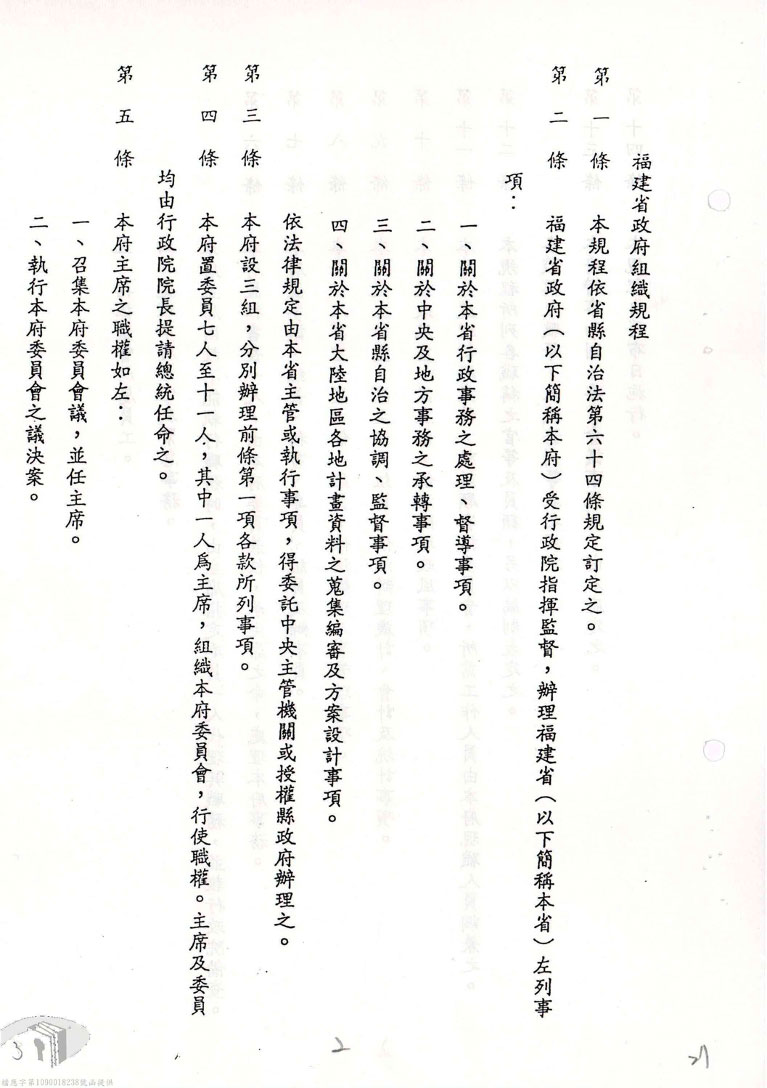 福建省政府組織規程
第一條　本規程依省縣自治法第六十四條規定訂定之。
第二條　福建省政府（以下簡稱本府）受行政院指揮監督，辦理福建省（以下簡稱本省）左列事
項：
一、關於本省行政事務之處理、督導事項。
二、關於中央及地方事務之承轉事項。
三、關於本省縣自治之協調、監督事項。
四、關於本省大陸地區各地計畫資料之蒐集編審及方案設計事項。
依法律規定由本省主管或執行事項，得委託中央主管機關或授權縣政府辦理之。
第三條　本府設三組，分別辦理前條第一項各款所列事項。
第四條　本府置委員七人至十一人，其中一人為主席，組織本府委員會，行使職權。主席及委員
均由行政院院長提請總統任命之。
第五條　本府主席之職權如左：
一、召集本府委員會議，並任主席。
二、執行本府委員會之議決案。
2
3
檔應字第1090018238號函提供